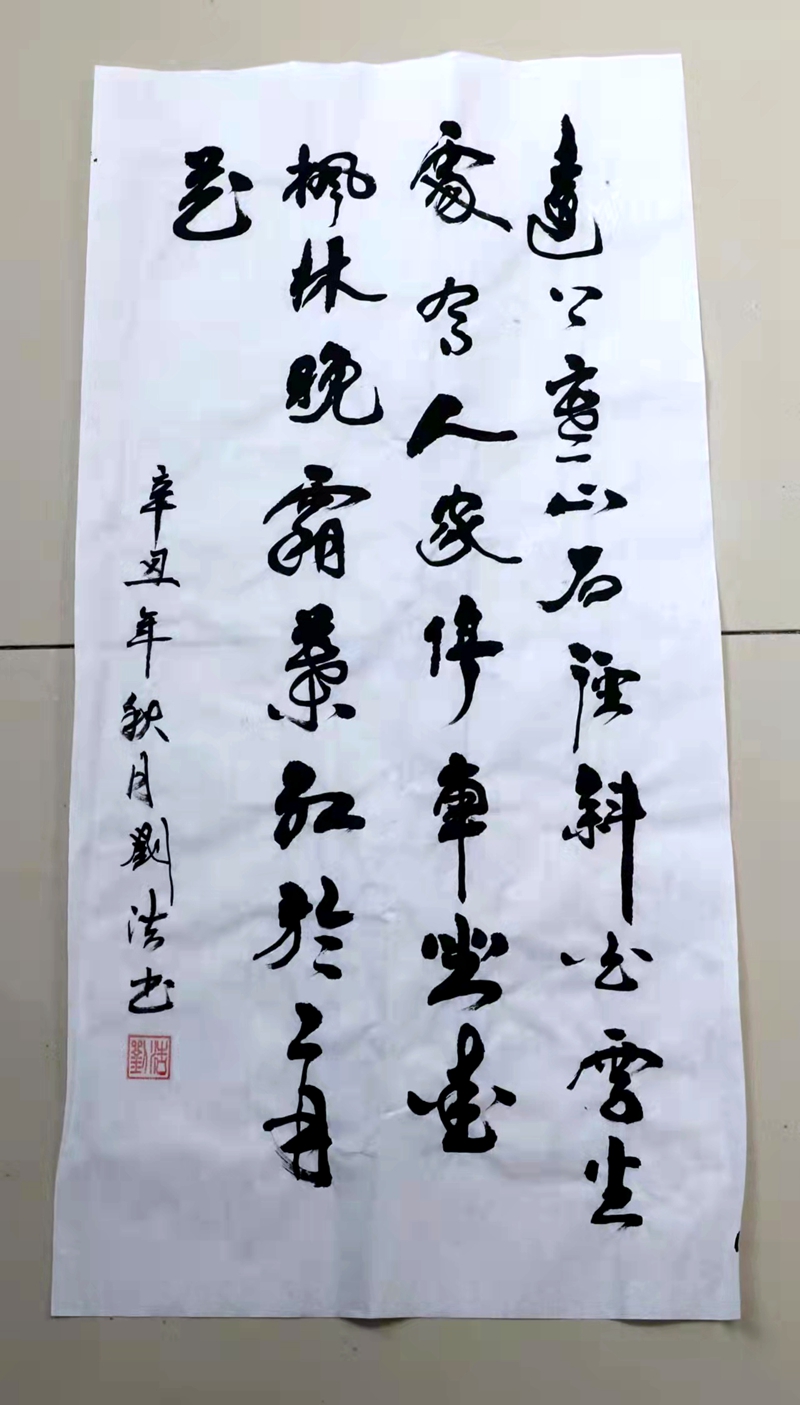 遠上寒山石徑斜白雲生
處有人家停車坐愛
楓林晚霜葉红於二月
花
辛丑年秋月劉浩书
劉浩